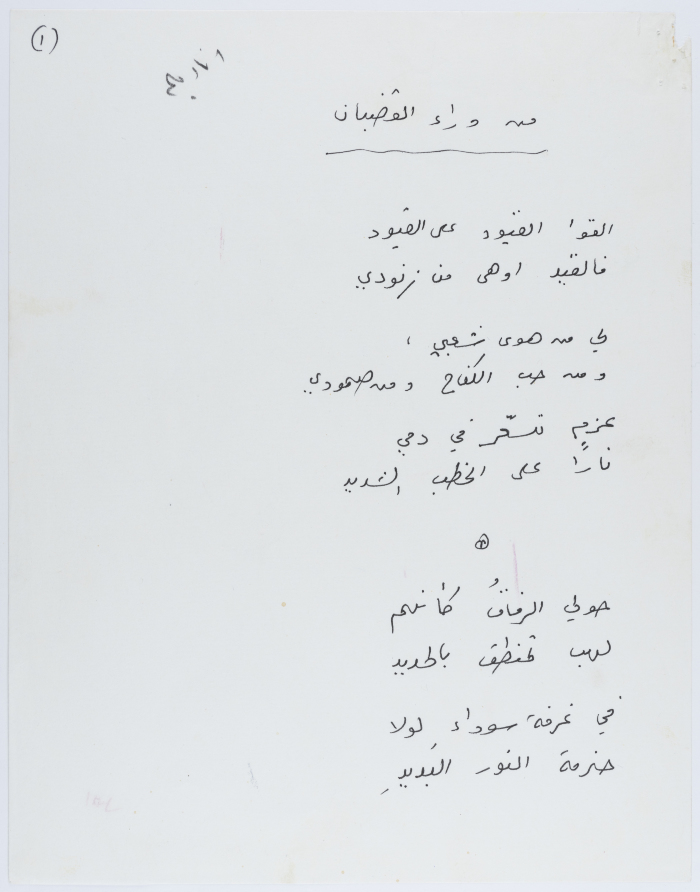 (١)
من وراء القضبان
القوا القيود على القيود
فالقيد اوهى من زنودي
لي من هوى شعبي ،
ومن حب الكفاح ومن صمودي
عزمٍ تسعّر في دمي
نارًا على الخطب الشديد
حولي الرفاقُ كأنهم
لهب تمنطق بالحديد
في غرفة سوداءِ لولا
حزمة النور البديدِ